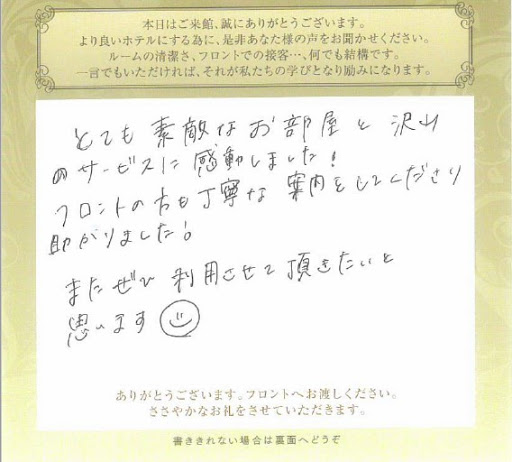 本日はご来館、誠にありがとうございます。
より良いホテルにする為に、是非あなた様の声をお聞かせください。
ルームの清潔さ、フロントでの接客…、何でも結構です。
一言でもいただければ、それが私たちの学びとなり励みになります。
とても素敵なお部屋と沢山
のサービスに感動しました!
フロントの方も丁寧な案内をしてくださり
助かりました!
またぜひ利用させて頂きたいと
思います
ありがとうございます。フロントへお渡しください。
ささやかなお礼をさせていただきます。
書ききれない場合は裏面へどうぞ